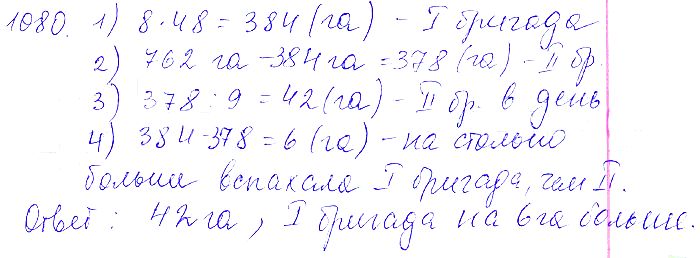 1080. 1) 8·48 = 384 (га) – I бригада
2) 762 га – 384 га = 378 (га) – II бр.
3) 378 : 9 = 42 (га) – II бр. в день
4) 384 – 378 = 6 (га) – на столько
больше вспахала I бригада, чем II.
Ответ: 42 га, I бригада на 6 га больше.